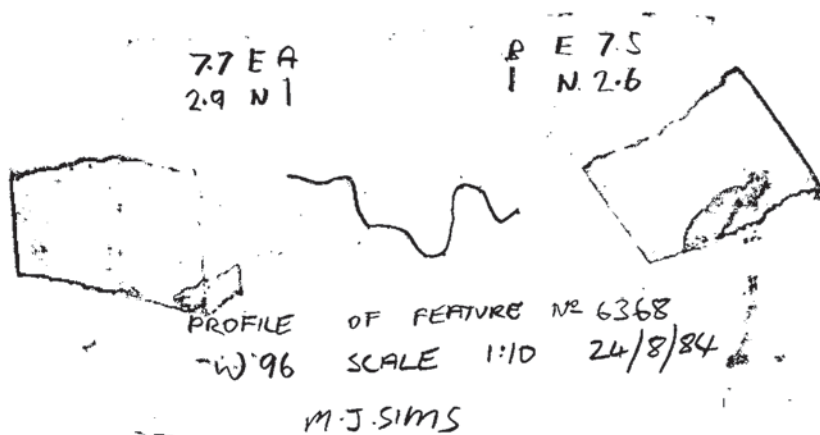 7.7 E A
2.9 N 1
B E 7.5
1 N. 2.6
PROFILE OF FEATURE Nº 6368
W'96 SCALE 1:10 24/8/84
M.J.SIMS